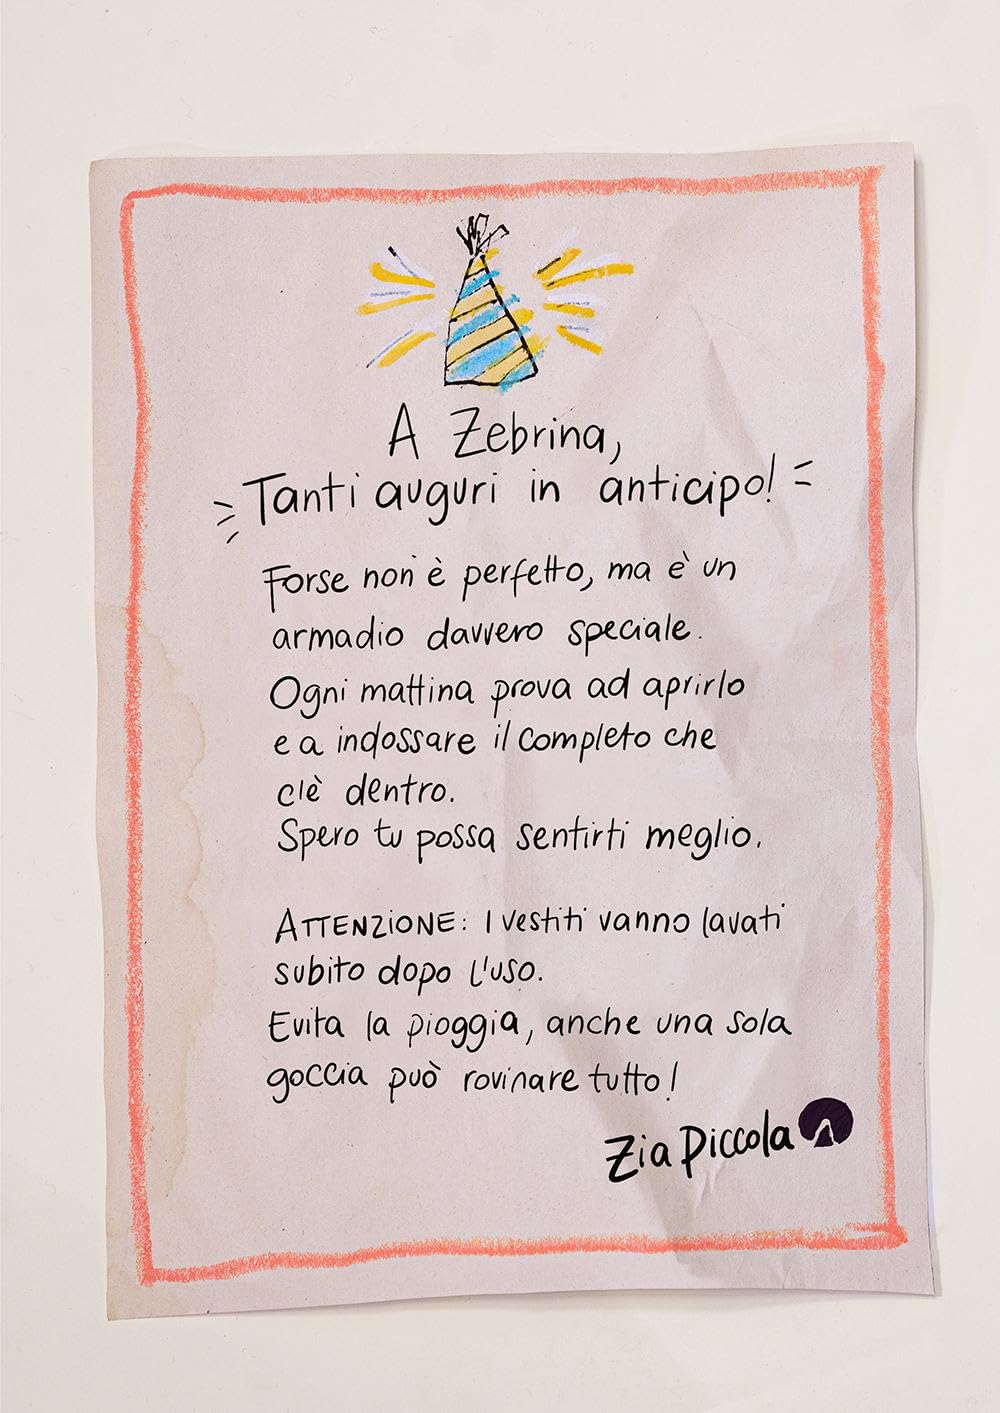 A Zebrina,
Tanti auguri in anticipo!
Forse non è perfetto, ma è un
armadio davvero speciale.
Ogni mattina prova ad aprirlo
e a indossare il completo che
c'è dentro.
Spero tu possa sentirti meglio.
ATTENZIONE: I vestiti vanno lavati
subito dopo l'uso.
Evita la pioggia, anche una sola
goccia può rovinare tutto!
Zia Piccola